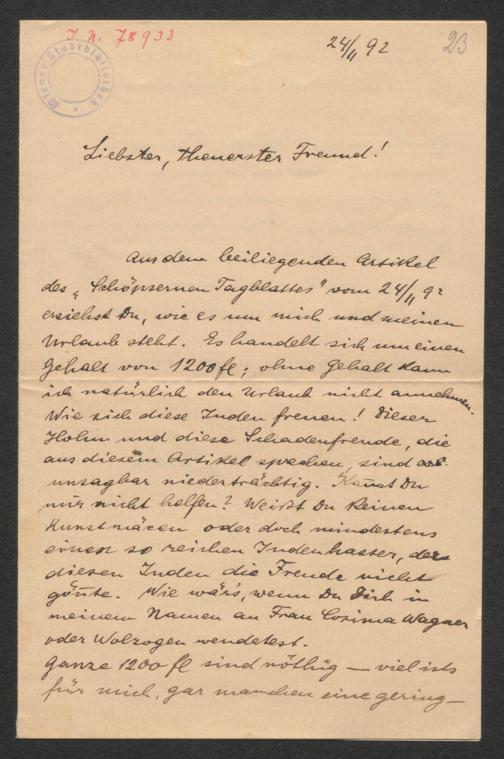 I. N. 78933
24/II 92
23
Wiener Stadtbibliothek
Liebster, theuerster Freund!
Aus dem beiliegenden Artikel
des „Schöpsernen Tagblattes" vom 24/II 92
ersiehst Du, wie es um mich und meinen
Urlaub steht. Es handelt sich um einen
Gehalt von 1200 fl; ohne Gehalt kann
ich natürlich den Urlaub nicht annehmen.
Wie sich diese Juden freuen! Dieser
Hohn und diese Schadenfreude, die
aus diesem Artikel sprechen, sind
unsagbar niederträchtig. Kannst Du
mir nicht helfen? Weißt Du keinen
Kunstmäcen oder doch mindestens
einen so reichen Judenhasser, der
diesen Juden die Freude nicht
gönnte. Wie wärs, wenn Du Dich in
meinem Namen an Frau Cosima Wagner
oder Wolzogen wendetest.
Ganze 1200 fl sind nöthig — viel ists
für mich, gar manchen eine gering-